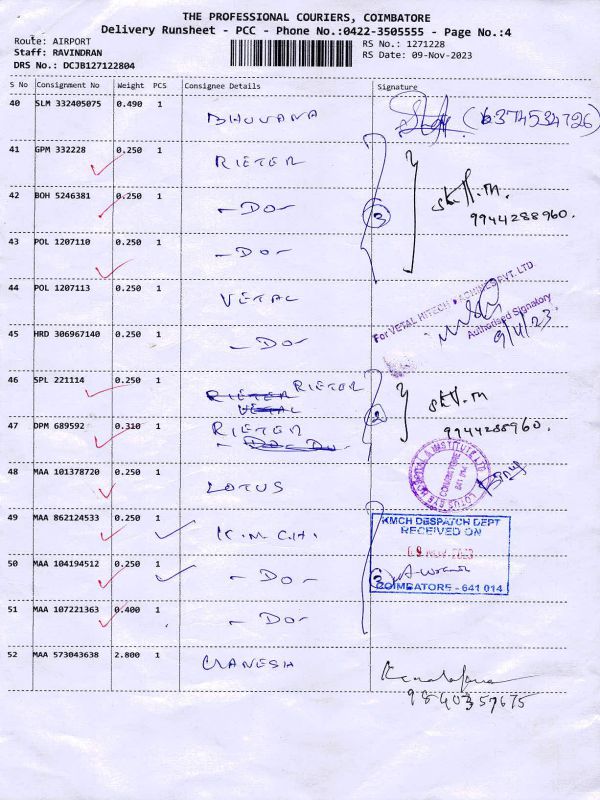 THE PROFESSIONAL COURIERS, COIMBATORE
Delivery Runsheet - PCC - Phone No.:0422-3505555 - Page No.:4
Route: AIRPORT
Staff: RAVINDRAN
DRS No.: DCJB127122804
RS No.: 1271228
RS Date: 09-Nov-2023
S No Consignment No Weight PCS Consignee Details Signature
40 SLM 332405075 0.490 1 BHUVANA (6374534726)
41 GPM 332228 0.250 1 RIETER
42 BOH 5246381 0.250 1 -DO- 3 9944288960.
43 POL 1207110 0.250 1 -DO-
44 POL 1207113 0.250 1 VETAL
For VETAL HITECH PVT. LTD.
Authorised Signatory
9/11/23
45 HRD 306967140 0.250 1 -DO-
46 SPL 221114 0.250 1 RIETER RIETER
VETAL
47 DPM 689592 0.310 1 RIETER 2 9944288960.
-DO-
48 MAA 101378720 0.250 1 LOTUS
LOTUS EYE HOSPITAL & INSTITUTE LTD
COIMBATORE
641 014
49 MAA 862124533 0.250 1 K.M.C.H.
KMCH DESPATCH DEPT
RECEIVED ON
09 NOV 2023
50 MAA 104194512 0.250 1 -DO- 3
COIMBATORE - 641 014
51 MAA 107221363 0.400 1 -DO-
52 MAA 573043638 2.800 1 GANESH
9840357675